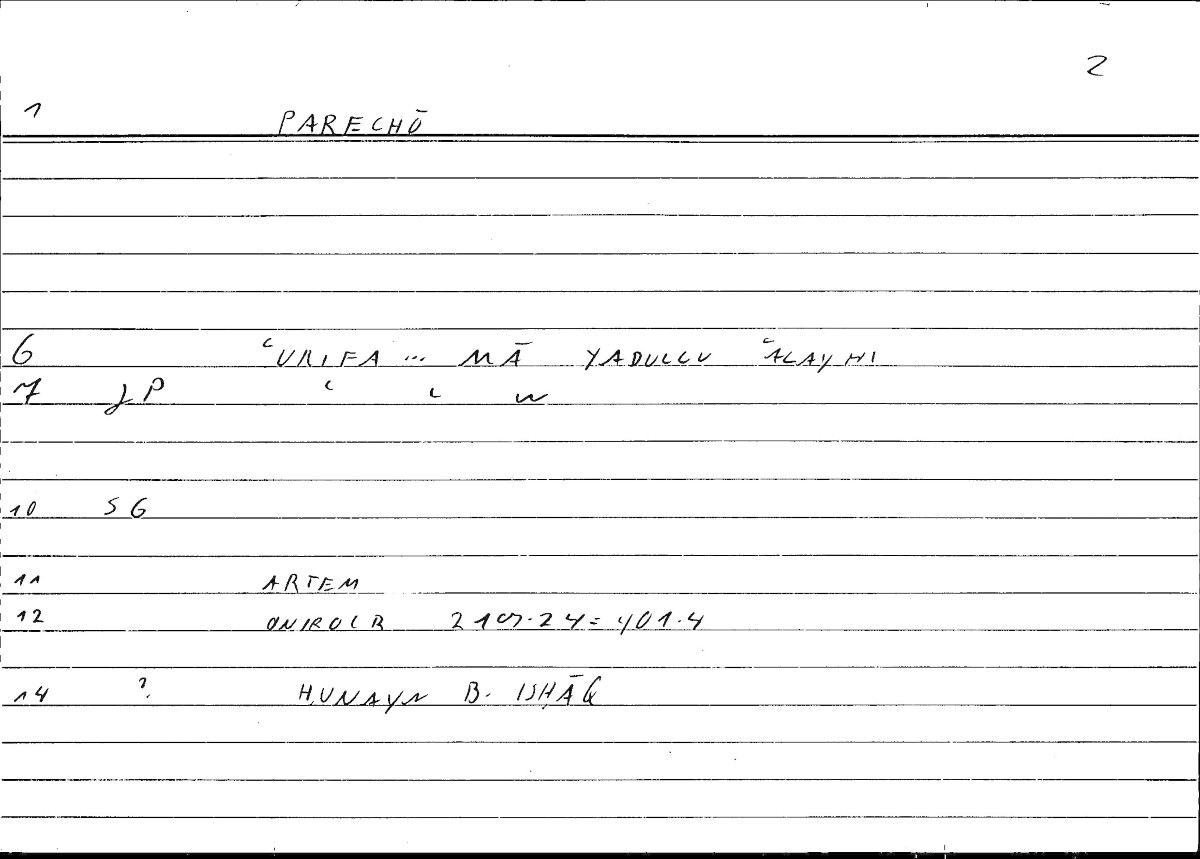 2
1 PARECHŌ
6 ʿURIFA ... MĀ YADULLU ʿALAYHI
7 ʿ ʿ w
10 SG
11 ARTEM
12 ONIROCR 219.24 = 401.4
14 ? ḤUNAYN B. ISḤĀQ